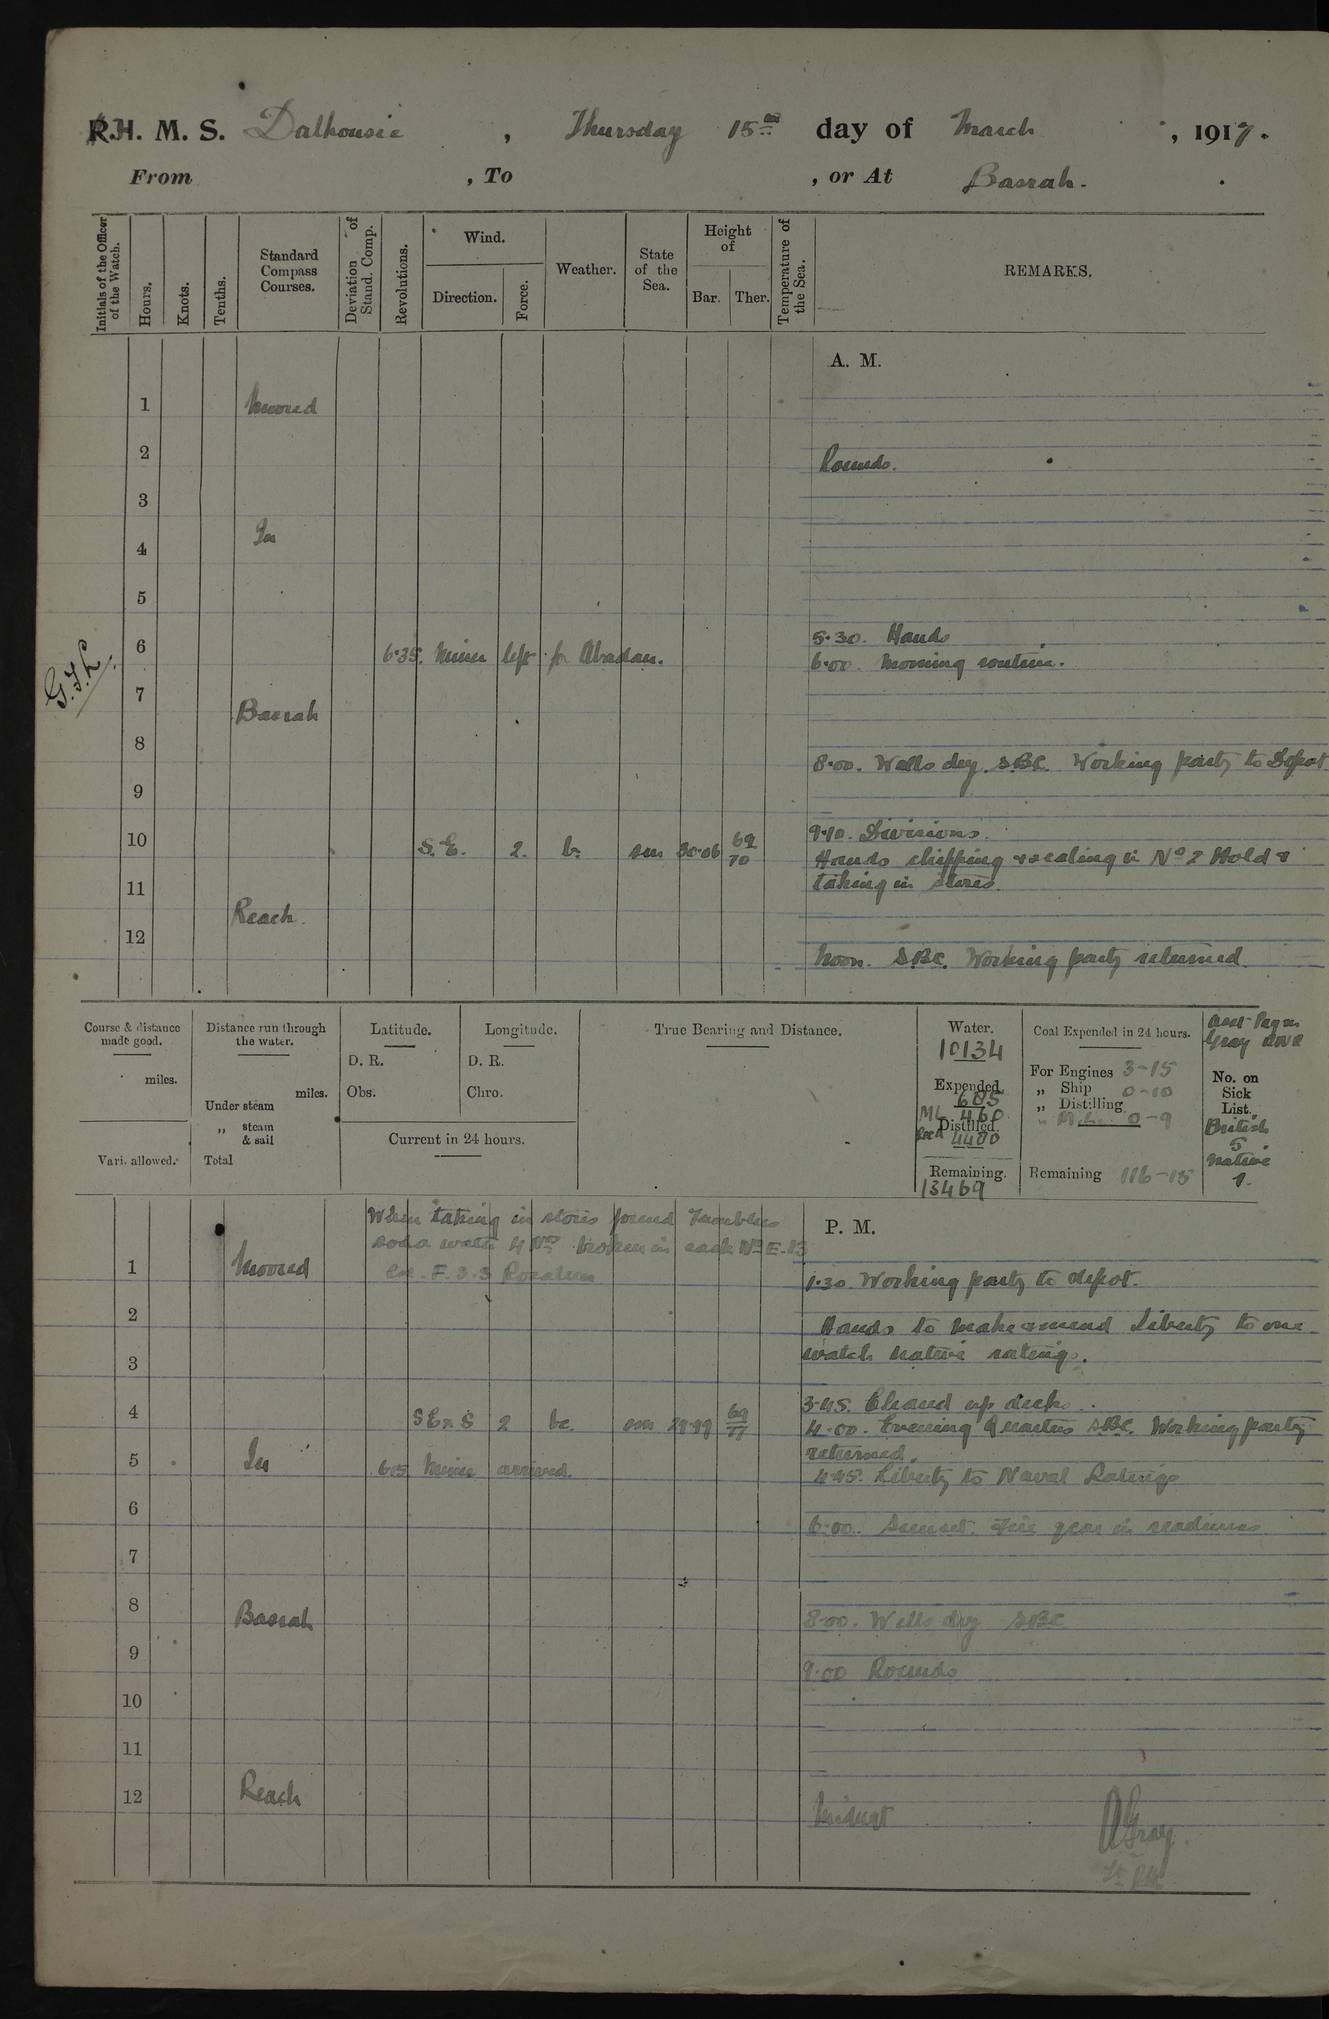 R.H. M. S. Dalhousie, Thursday 15th day of March, 1917.
From , To , or At Basrah.
Initials of the Officer of the Watch.
Hours.
Knots.
Tenths.
Standard Compass Courses.
Deviation of Stand. Comp.
Revolutions.
Wind.
Direction.
Force.
Weather.
State of the Sea.
Height of
Bar.
Ther.
Temperature of the Sea.
REMARKS.
A. M.
1 Moored
2 Rounds.
3
4 In
5
5.30. Hands
6 6.35. Miner left for Abadan. 6.00. Morning routine.
G.F.L.
7 Basrah
8 8.00. Wells dry. SBC. Working party to Depot
9
9.10. Divisions.
10 S.E. 2. b. sm 30.06 69 70 Hands chipping & scaling in No 2 Hold &
11 taking in stores.
Reach.
12 Noon. SBC. Working party returned
Course & distance made good.
miles.
Vari. allowed.
Distance run through the water.
miles.
Under steam
„ steam & sail
Total
Latitude.
D. R.
Obs.
Longitude.
D. R.
Chro.
Current in 24 hours.
True Bearing and Distance.
Water.
10134
Expended
605
ML 460
Distilled.
Recd 4400
Remaining.
13469
Coal Expended in 24 hours.
For Engines 3-15
„ Ship 0-10
„ Distilling
„ M.L. 0-9
Remaining 116-15
Gray
No. on Sick List.
British
5
Native
1.
When taking in stores found
soda water 4 Nos broken in cask No E.13
P. M.
1 Moored
1.30. Working party to depot.
2 Hands to make & mend Liberty to one
3 watch native ratings.
3.45. Cleared up decks.
4 S E x S 2 bc. sm 29.99 69 77 4.00. Evening Quarters SBC. Working party
returned.
5 In 6.05 Miner arrived. 4.45. Liberty to Naval Ratings
6 6.00. Sunset. Fire gear in readiness
7
8 Basrah 8.00. Wells dry SBC
9 9.00 Rounds
10
11
12 Reach Midngt
AGray.